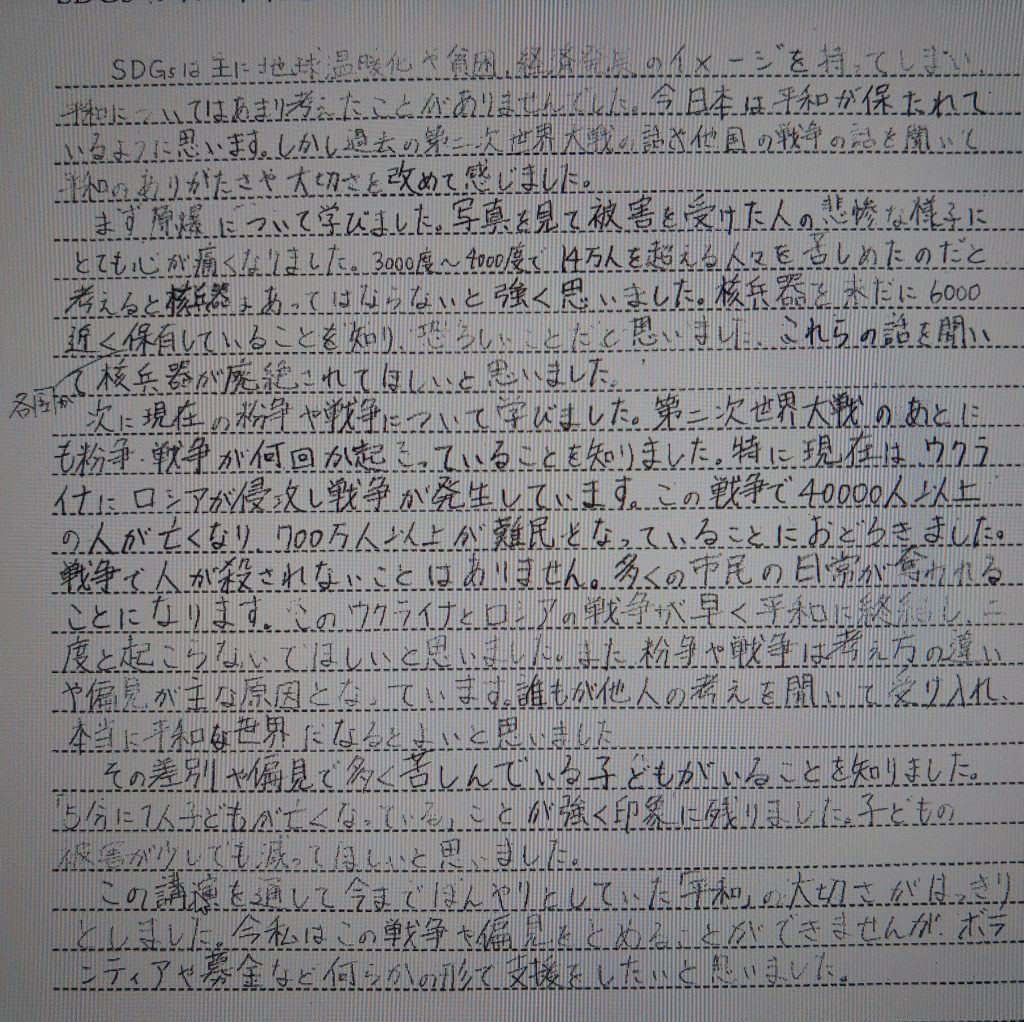 SDGsは主に地球温暖化や貧困、経済発展のイメージを持ってしまい、
平和についてはあまり考えたことがありませんでした。今日本は平和が保たれて
いるように思います。しかし過去の第二次世界大戦の話や他国の戦争の話を聞いて
平和のありがたさや大切さを改めて感じました。
まず原爆について学びました。写真を見て被害を受けた人の悲惨な様子に
とても心が痛くなりました。3000度～4000度で14万人を超える人々を苦しめたのだと
考えると核兵器はあってはならないと強く思いました。核兵器を未だに6000
近く保有していることを知り、恐ろしいことだと思いました。これらの話を聞い
て核兵器が廃絶されてほしいと思いました。
各国が
次に現在の紛争や戦争について学びました。第二次世界大戦のあとに
も紛争、戦争が何回か起こっていることを知りました。特に現在は、ウクラ
イナにロシアが侵攻し戦争が発生しています。この戦争で40000人以上
の人が亡くなり、700万人以上が難民となっていることにおどろきました。
戦争で人が殺されないことはありません。多くの市民の日常が奪われる
ことになります。このウクライナとロシアの戦争が早く平和に終結し、二
度と起こらないでほしいと思いました。また紛争や戦争は考え方の違い
や偏見が主な原因となっています。誰もが他人の考えを聞いて受け入れ、
本当に平和な世界になるとよいと思いました
その差別や偏見で多く苦しんでいる子どもがいることを知りました。
「5分に1人子どもが亡くなっている」ことが強く印象に残りました。子どもの
被害が少しでも減ってほしいと思いました。
この講演を通して今までぼんやりとしていた「平和」の大切さがはっきり
としました。今私はこの戦争や偏見をとめることができませんが、ボラ
ンティアや募金など何らかの形で支援をしたいと思いました。